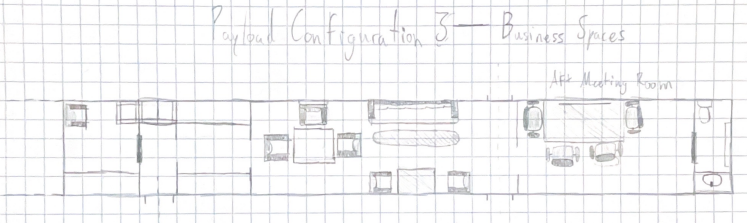 Payload Configuration 3 — Business Spaces
Aft Meeting Room